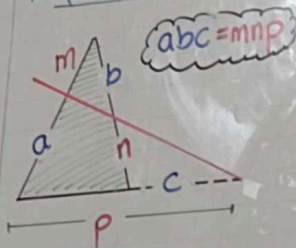 abc=mnp
m
b
a
n
c
p